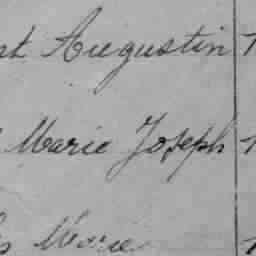 Augustin
Marie Joseph
Marie